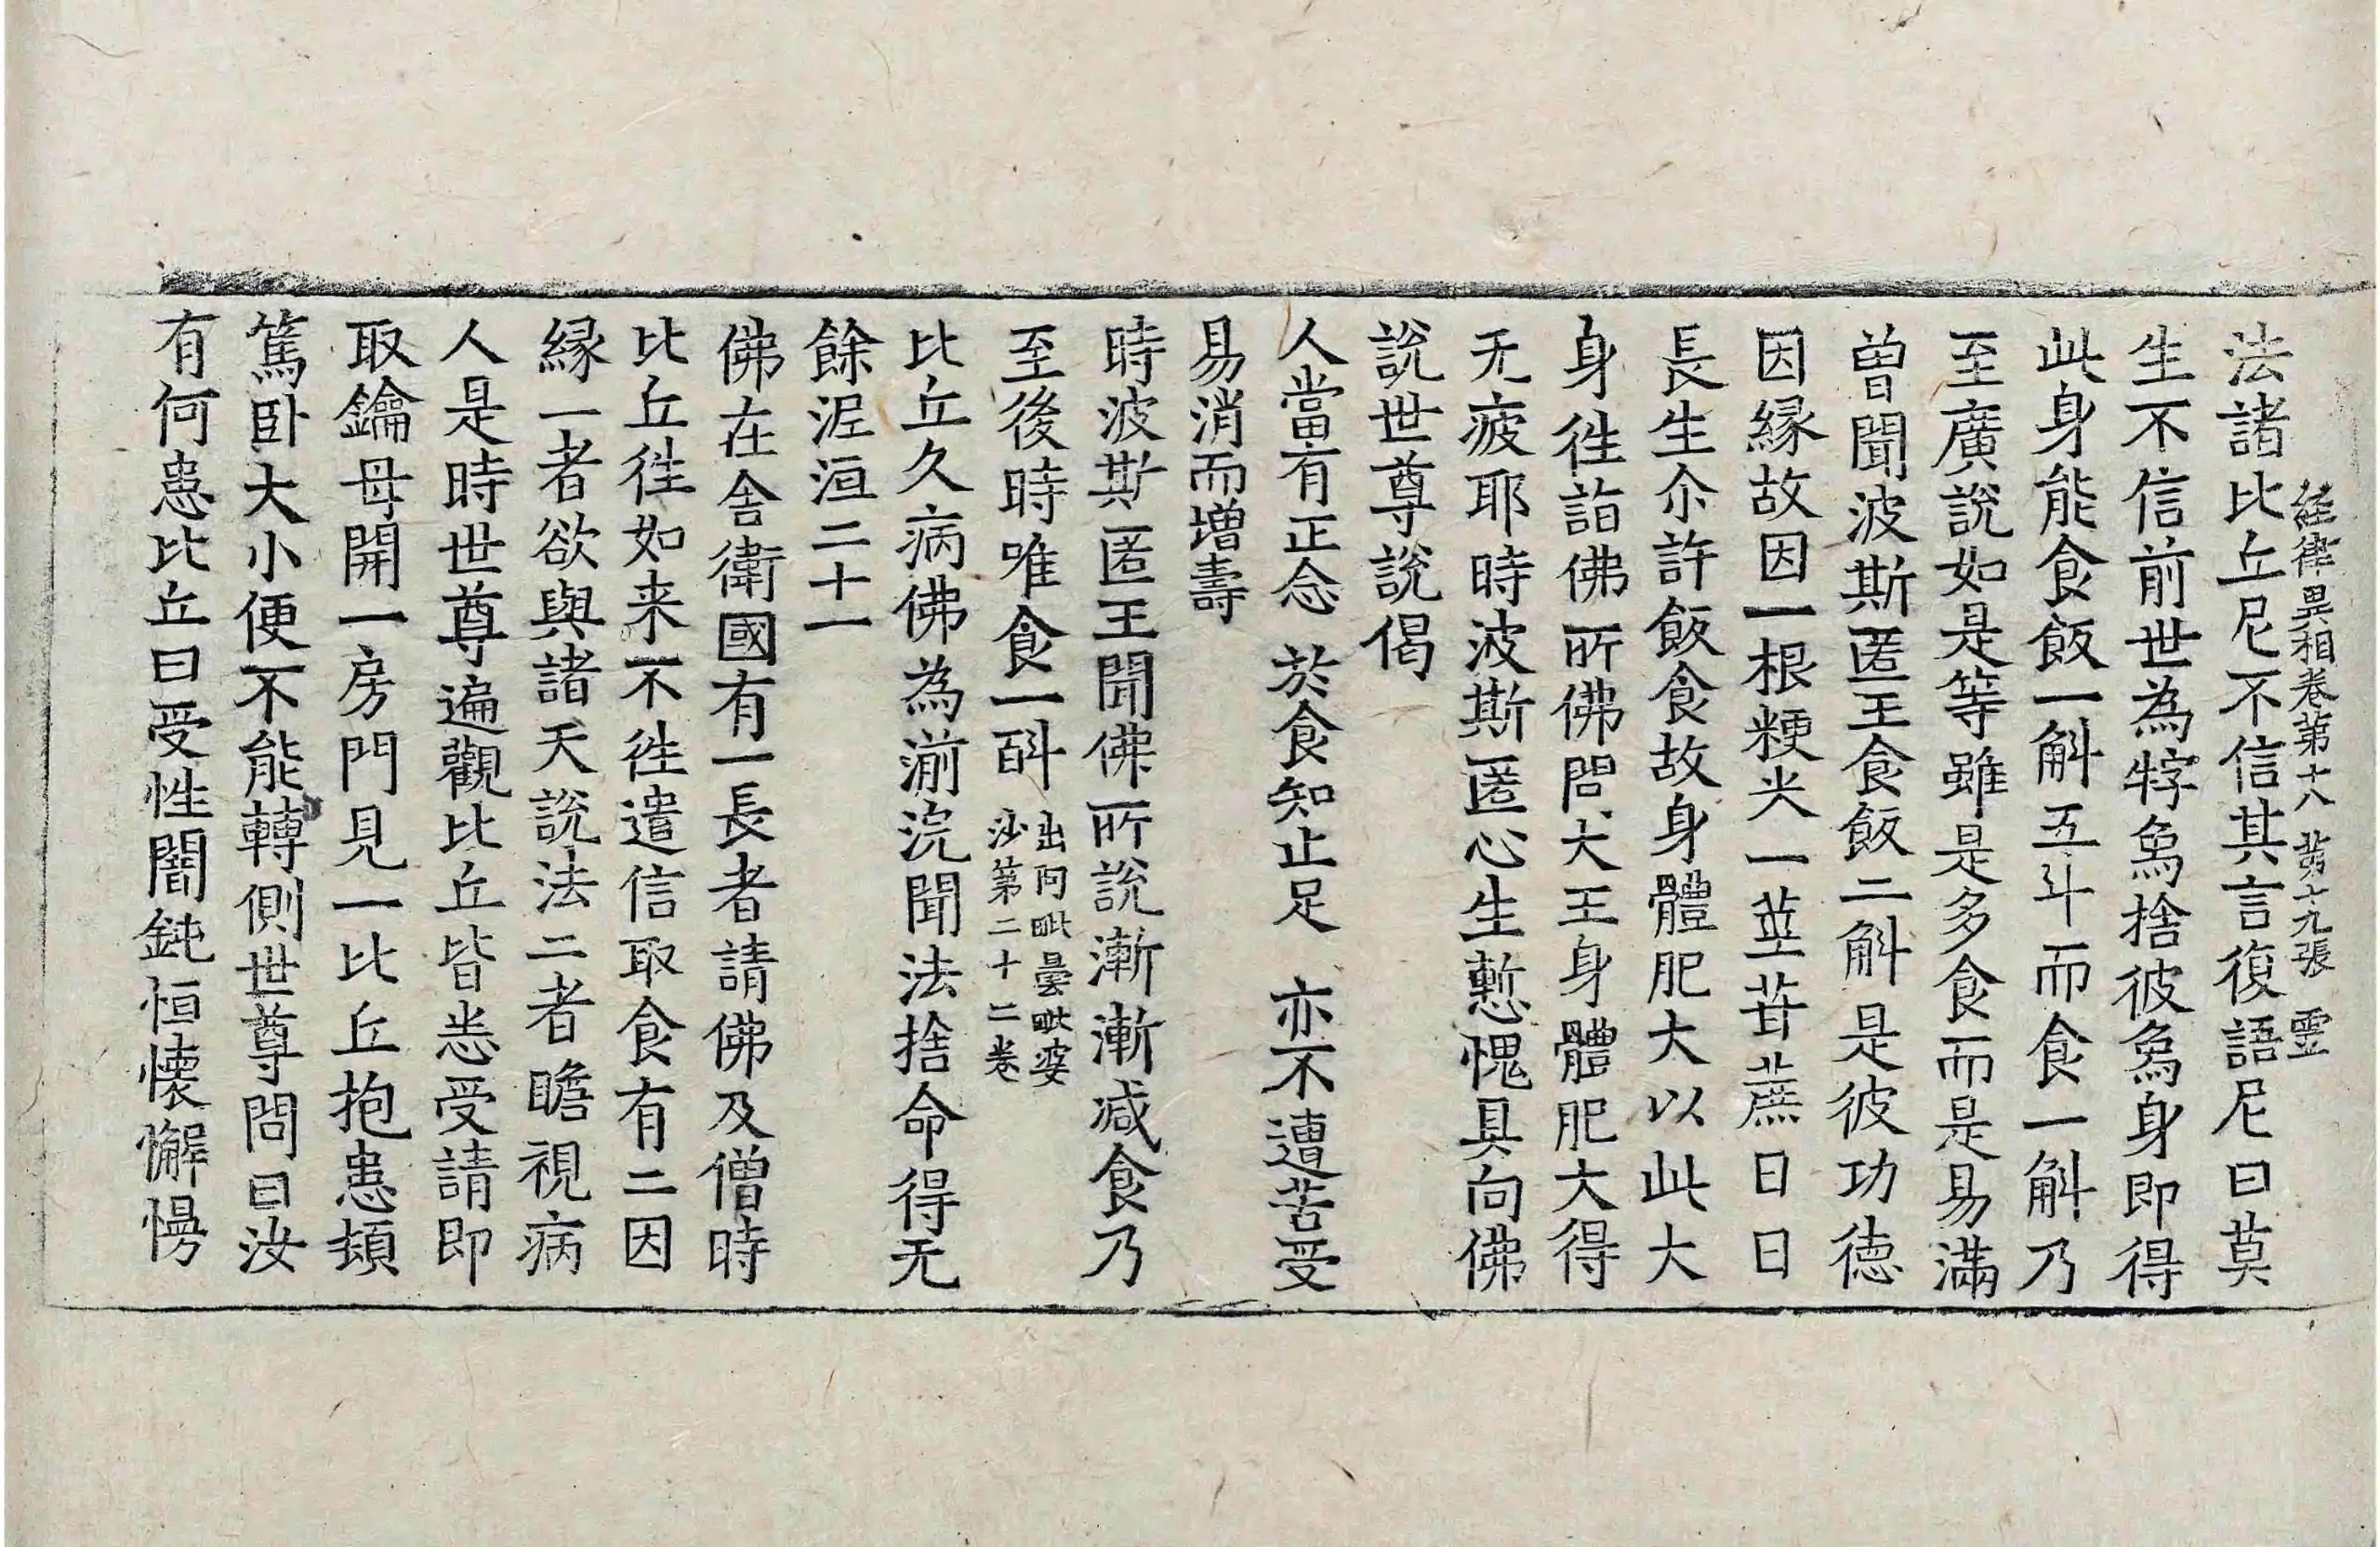 經律異相卷第十八 第十九張 靈
法諸比丘尼不信其言復語尼曰莫
生不信前世為牸象捨彼象身即得
此身能食飯一斛五斗而食一斛乃
至廣說如是等雖是多食而是易滿
曾聞波斯匿王食飯二斛是彼功德
因緣故因一根粳米一莖苷蔗日日
長生尒許飯食故身體肥大以此大
身往詣佛所佛問大王身體肥大得
无疲耶時波斯匿心生慙愧具向佛
說世尊說偈
人當有正念 於食知止足 亦不遭苦受
易消而增壽
時波斯匿王聞佛所說漸漸减食乃
至後時唯食一㪷 出阿毗曇毗婆沙第二十二卷
比丘久病佛為湔浣聞法捨命得无
餘泥洹二十一
佛在舍衛國有一長者請佛及僧時
比丘往如来不往遣信取食有二因
緣一者欲與諸天說法二者瞻視病
人是時世尊遍觀比丘皆悉受請即
取鑰母開一房門見一比丘抱患頓
篤卧大小便不能轉側世尊問曰汝
有何患比丘曰受性闇鈍恒懐懈慢